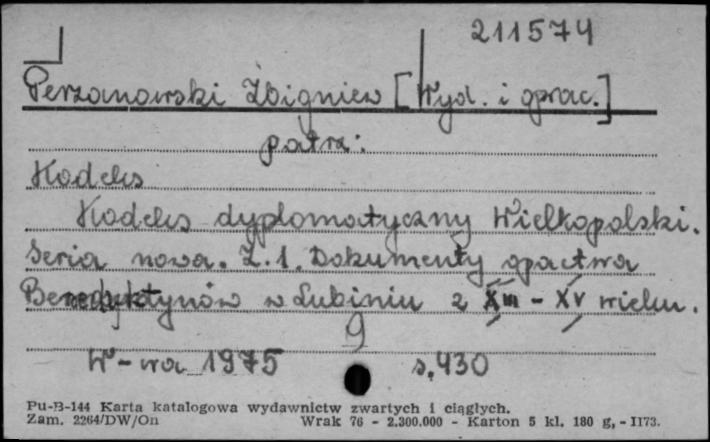 211574
Perzanowski Zbigniew [Wyd. i oprac.]
patrz:
Kodeks
Kodeks dyplomatyczny Wielkopolski.
Seria nowa. Z.1. Dokumenty opactwa
Benedyktynów w Lubiniu z XIII - XV wieku.
9
W-wa 1975 s. 430
Pu-B-144 Karta katalogowa wydawnictw zwartych i ciągłych.
Zam. 2264/DW/On Wrak 76 - 2.300.000 - Karton 5 kl. 180 g, - II73.